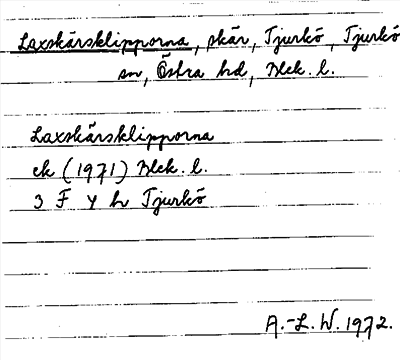 Laxskärsklipporna, skär, Tjurkö, Tjurkö
sn, Östra hd, Blek. l.
Laxskärsklipporna
ek (1971) Blek. l.
3 F y h Tjurkö
A.-L. W. 1972.